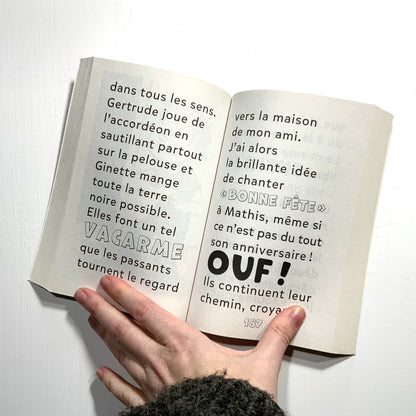 dans tous les sens.
Gertrude joue de
l'accordéon en
sautillant partout
sur la pelouse et
Ginette mange
toute la terre
noire possible.
Elles font un tel
VACARME
que les passants
tournent le regard
vers la maison
de mon ami.
J'ai alors
la brillante idée
de chanter
« BONNE FÊTE »
à Mathis, même si
ce n'est pas du tout
son anniversaire !
OUF !
Ils continuent leur
chemin, croya
187